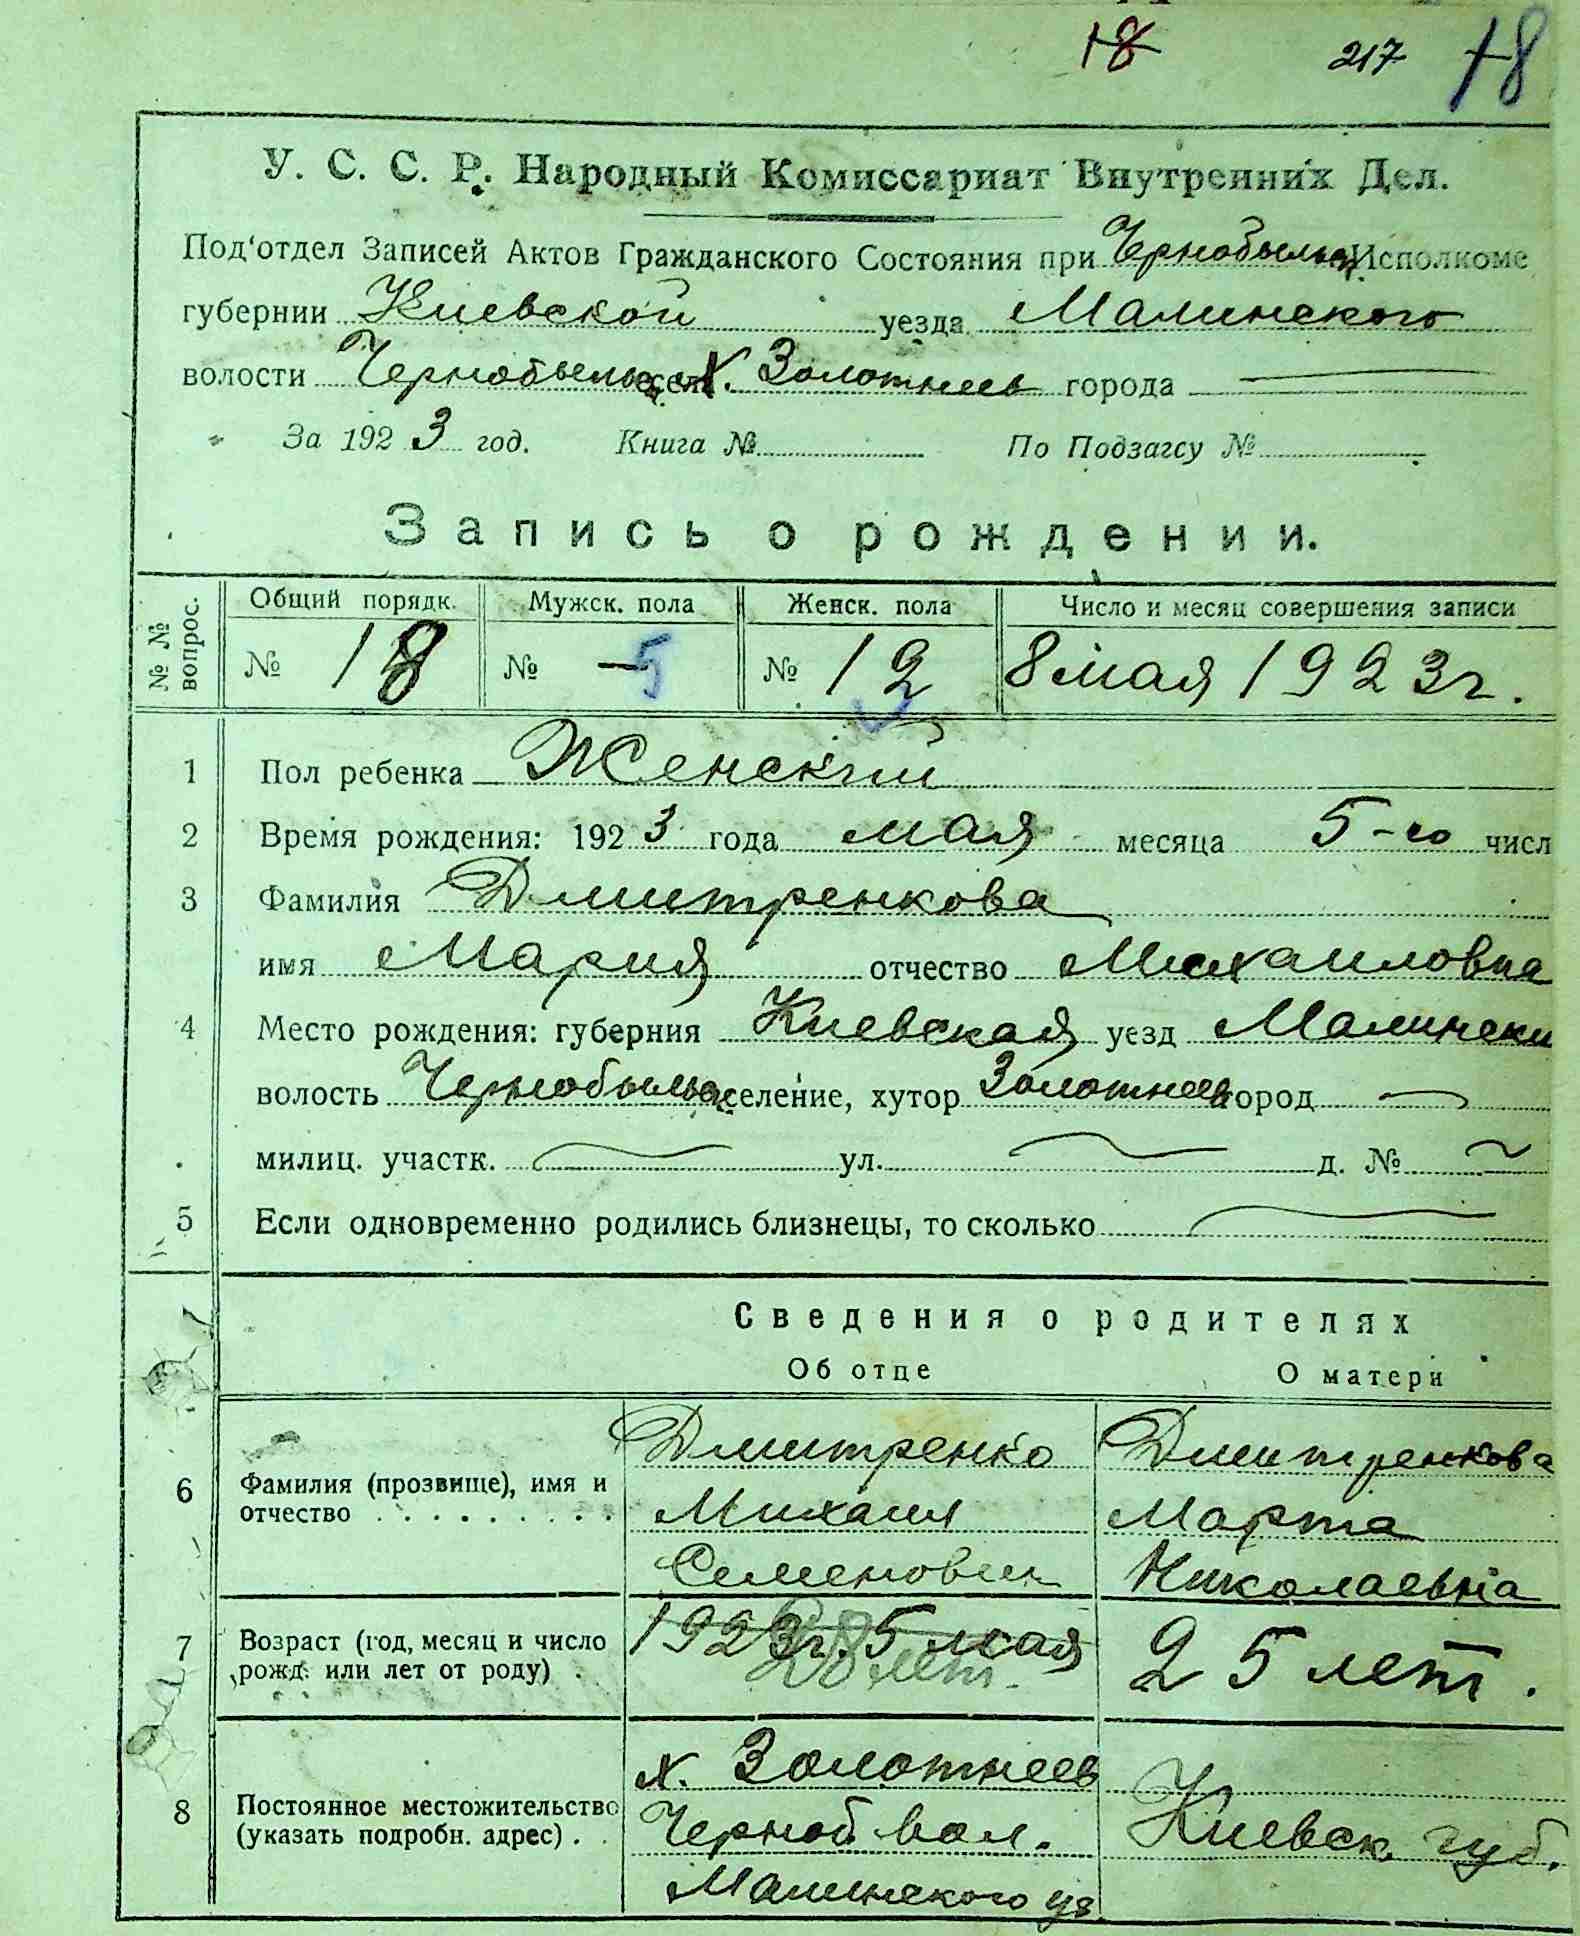 18 217 18
У. С. С. Р. Народный Комиссариат Внутренних Дел.
Под'отдел Записей Актов Гражданского Состояния при Чернобыльск Исполкоме
губернии Киевской уезда Малинского
волости Чернобыльск села х. Золотнеев города
За 1923 год. Книга № По Подзагсу №
Запись о рождении.
№№ вопрос. Общий порядк. Мужск. пола Женск. пола Число и месяц совершения записи
№ 18 № 5 № 12 8 мая 1923 г.
1 Пол ребенка Женский
2 Время рождения: 1923 года мая месяца 5-го числ
3 Фамилия Дмитренкова
имя Мария отчество Михаиловна
4 Место рождения: губерния Киевская уезд Малински
волость Чернобыльск селение, хутор Золотнеев город
милиц. участк. ул. д. №
5 Если одновременно родились близнецы, то сколько
Сведения о родителях
Об отце О матери
6 Фамилия (прозвище), имя и отчество
Дмитренко
Михаил
Семенович
Дмитренкова
Марта
Николаевна
7 Возраст (год, месяц и число рожд. или лет от роду)
1923 г. 5 мая
28 лет.
25 лет.
8 Постоянное местожительство (указать подробн. адрес)
х. Золотнеев
Черноб. вол.
Малинского уз.
Киевск. губ.